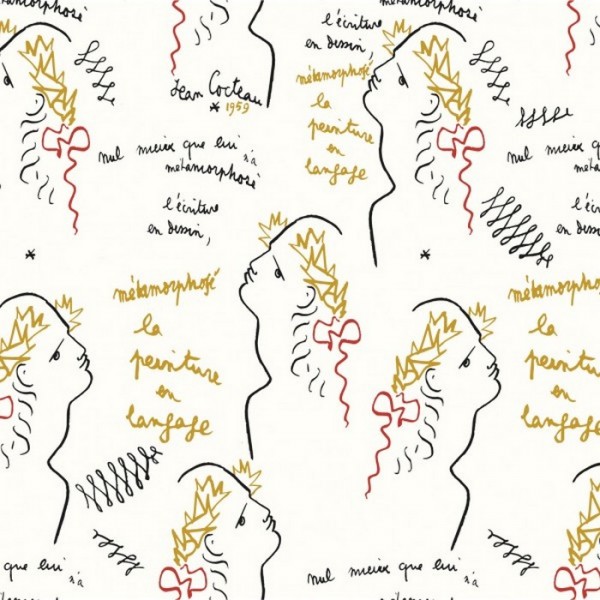 métamorphosé
métamorphosé
l'écriture
en dessin,
métamorphosé
la
peinture
en
langage
Jean Cocteau
* 1959
nul mieux que lui n'a
métamorphosé
l'écriture
en dessin,
nul mieux q
méta
l'éc
en dessin,
*
*
métamorphosé
la
peinture
en
langage
métamorpho
la
peintu
en
langage
que lui n'a
nul mieux que lui n'a